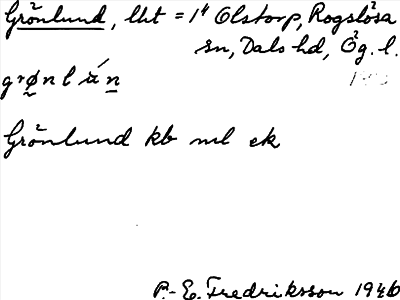 Grönlund, lht = 1⁴ Olstorp, Rogslösa
sn, Dals hd, Ög. l.
Grönlund kb ml ek
P.-E. Fredriksson 1946